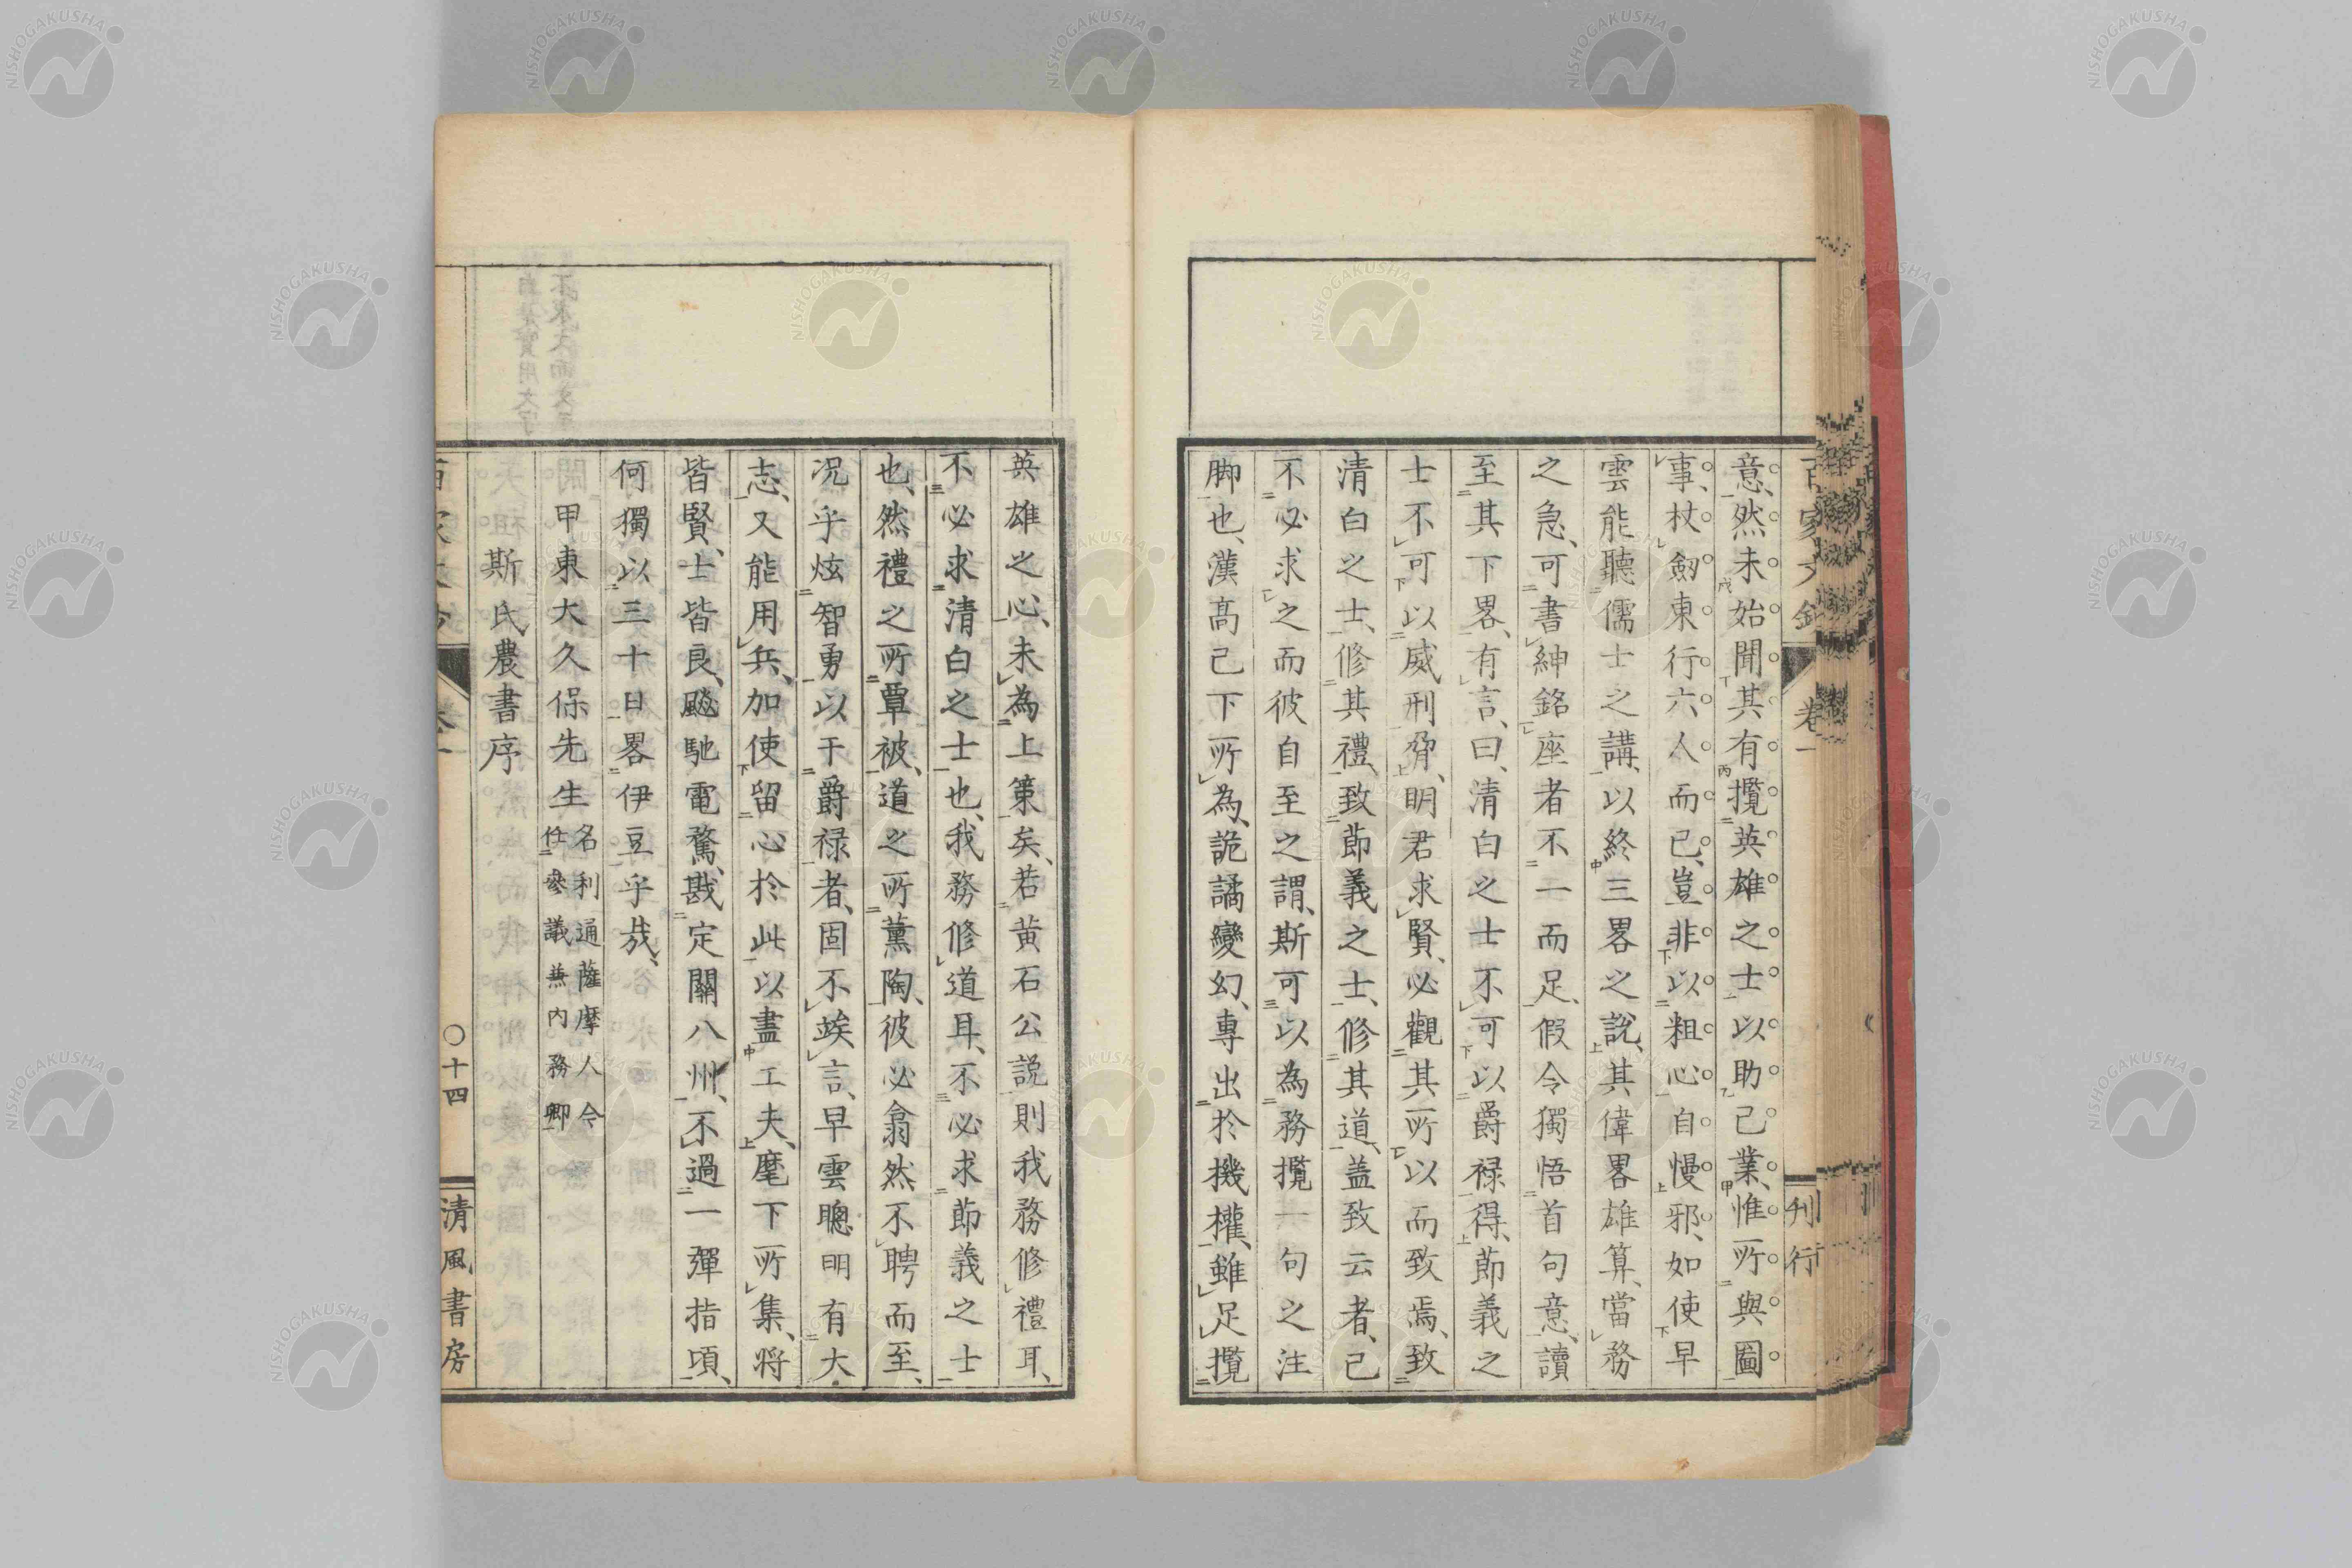 意、然未始聞其有攬英雄之士以助己業、惟所與圖
事、杖劒東行六人而已、豈非以粗心自慢邪、如使早
雲能聽儒士之講、以終三畧之説、其偉畧雄算、當務
之急、可書紳銘座者不一而足、假令獨悟首句意、讀
至其下畧、有言、曰、清白之士不可以爵禄得、節義之
士不可以威刑脅、明君求賢、必觀其所以而致焉、致
清白之士、修其禮、致節義之士、修其道、蓋致云者、已
不必求之而彼自至之謂、斯可以為務攬一句之注
脚也、漢高己下所為、詭譎變幻、專出於機權、雖足攬
英雄之心、未為上策矣、若黄石公説則我務修禮耳、
不必求清白之士也、我務修道耳、不必求節義之士
也、然禮之所覃被、道之所薫陶、彼必翕然不聘而至、
况乎炫智勇以干爵禄者、固不竢言、早雲聰明有大
志、又能用兵、加使留心於此以盡工夫、麾下所集、將
皆賢、士皆良、飈馳電騖、戡定關八州、不過一彈指頃、
何獨以三十日畧伊豆乎哉、
甲東大久保先生 名利通薩摩人今
任參議兼内務卿
斯氏農書序
卷一
〇十四
清風書房
刊行
NISHOGAKUSHA